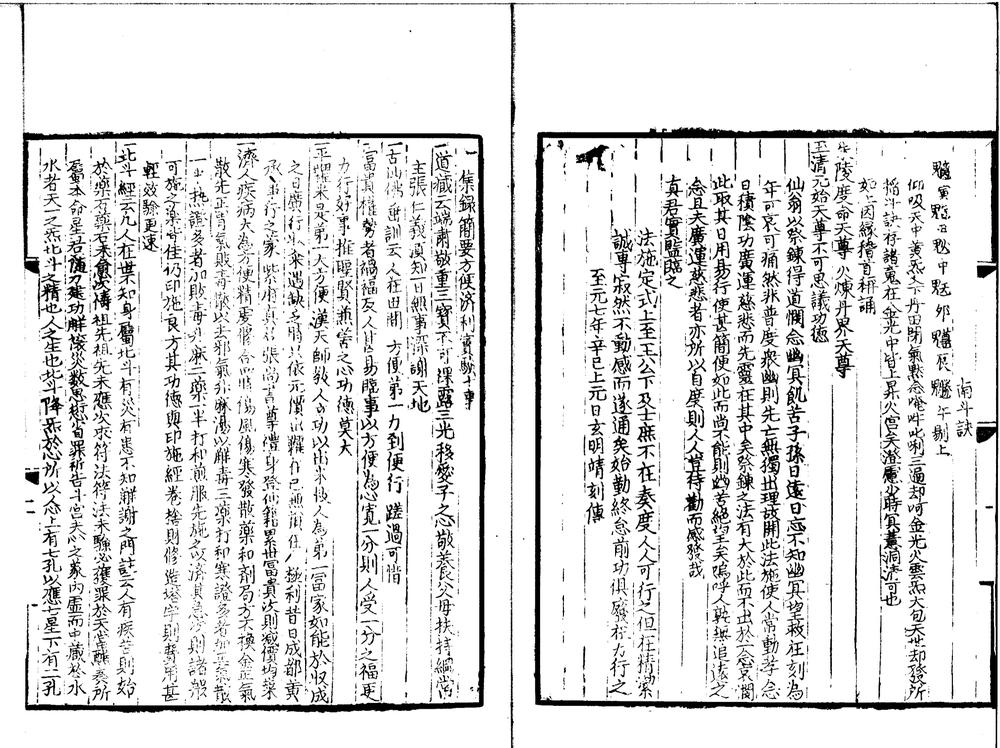 南斗訣
魒寅魁丑魓申魁卯䰢辰魒午剔上
仰吸天中黃炁入丹田閉氣默念唵吽唎三過却呵金光火雲炁大包天世却發所
掐斗訣存諸鬼在金光中皆上昇火宮矣澄慮少時冥蕙洞清可也
如上因緣稽首稱誦
朱陵度命天尊 火煉丹界天尊
玉清元始天尊不可思議功德
仙翁以祭鍊得道憫念幽冥飢苦子孫日遠日忘不知幽冥望救在刻為
年可哀可痛然非普度衆幽則先亡無獨出理故開此法施使人常動孝念
日積陰功廣運慈悲而先靈在其中矣祭鍊之法有大於此而不出於一念哀憫
此取其日用易行使甚簡便如此而尚不能則幽苦絕望矣嗚呼人孰無追遠之
念且夫廣運慈悲者亦所以自度則人人豈待勸而感發哉
真君實鑒臨之
法施定式上至王公下及士庶不在奏度人人可行之但在精潔
誠專寂然不動感而遂通矣始勤終怠前功俱廢在力行之
至元七年辛巳上元日玄明靖刻傳
集錄簡要方便濟利實驗十事
一道藏云端肅敬重三寶不可裸露三光移愛子之心敬養父母扶持綱常
主張仁義須知日無事深謝天地
一古仙佛垂訓云人在世間 方便第一力到便行 蹉過可惜
一富貴權勢者禍福反人甚易臨事以方便為心寬一分則人受一分之福更
力行好事推聖賢兼善之心功德莫大
一平糶米是第一大方便漢天師教人立功以出米救人為第一富家如能於收成
之日廣行收糴遇缺之時只依元價出糶在己無損在人極利昔日成都黃
承事行之家紫府真君張尚書尊禮身登仙籍累世富貴次則減價均糴
一濟人疾病大為方便精虔脩合如將傷風傷寒發散藥和劑局方不換金正氣
散先正胃氣敗毒散以去邪氣升麻湯以解毒三藥打和寒證多者加正氣散
一半熱證多者加敗毒升麻二藥一半打和煎服先施之以濟損急公則諸般
可施之藥皆佳仍印施良方其功德與印施經卷捨財修造塔宇則費用甚
輕效驗更速
一北斗經云凡人在世不知身屬北斗有災有患不知解謝之門註云人有疾苦則始
於藥石藥石未愈次禱祖先祖先未應次求符法符法未驗必獲罪於天當醮奏所
屬本命星君隨力建功解禳災數思愆省罪祈告斗宮夫心之象內虛而中藏於水
水者天一之炁北斗之精也人之生也北斗降炁於心所以人心上有七孔以應七星下有二孔